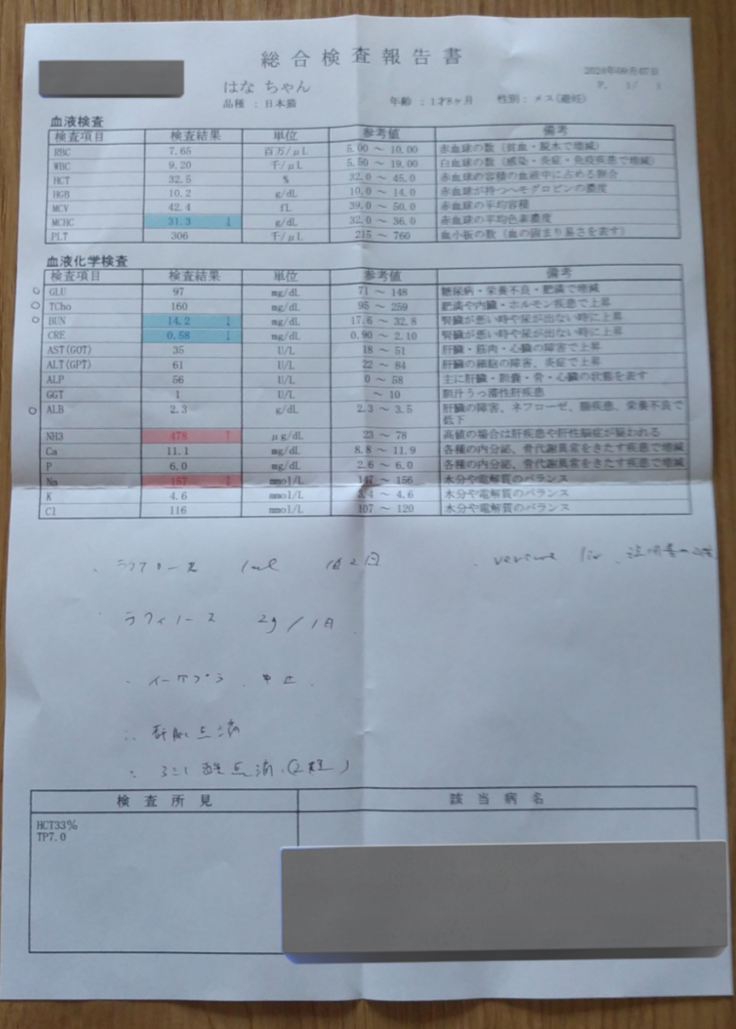 総合検査報告書
はな ちゃん
品種 : 日本猫 年齢 : 1才5ヶ月 性別 : メス(避妊)
血液検査
検査項目 検査結果 単位 参考値 備考
RBC 7.65 百万/μL 5.00 ～ 10.00 赤血球の数 (貧血・脱水で増減)
WBC 9.20 千/μL 5.50 ～ 19.00 白血球の数 (感染・炎症・免疫疾患で増減)
HCT 32.5 % 32.0 ～ 45.0 赤血球の容積の血液中に占める割合
HGB 10.2 g/dL 10.0 ～ 14.0 赤血球が持つヘモグロビンの濃度
MCV 42.4 fL 39.0 ～ 50.0 赤血球の平均容積
MCHC 31.3 ↓ g/dL 32.0 ～ 36.0 赤血球の平均色素濃度
PLT 306 千/μL 215 ～ 760 血小板の数 (血の固まり易さを表す)
血液化学検査
検査項目 検査結果 単位 参考値 備考
GLU 97 mg/dL 71 ～ 148 糖尿病・栄養不良・肥満で増減
TCho 160 mg/dL 95 ～ 259 肥満や内臓・ホルモン疾患で上昇
BUN 14.2 ↓ mg/dL 17.6 ～ 32.8 腎臓が悪い時や尿が出ない時に上昇
CRE 0.58 ↓ mg/dL 0.90 ～ 2.10 腎臓が悪い時や尿が出ない時に上昇
AST(GOT) 35 U/L 18 ～ 51 肝臓・筋肉・心臓の障害で上昇
ALT(GPT) 61 U/L 22 ～ 84 肝臓の細胞の障害、炎症で上昇
ALP 56 U/L 0 ～ 58 主に肝臓・胆嚢・骨・心臓の状態を表す
GGT 1 U/L ～ 10 胆汁うっ滞性肝疾患
ALB 2.3 g/dL 2.3 ～ 3.5 肝臓の障害、ネフローゼ、腸疾患、栄養不良で
低下
NH3 478 ↑ μg/dL 23 ～ 78 高値の場合は肝疾患や肝性脳症が疑われる
Ca 11.1 mg/dL 8.8 ～ 11.9 各種の内分泌、骨代謝異常をきたす疾患で増減
P 6.0 mg/dL 2.6 ～ 6.0 各種の内分泌、骨代謝異常をきたす疾患で増減
Na 157 ↑ mmol/L 147 ～ 156 水分や電解質のバランス
K 4.6 mmol/L 3.4 ～ 4.6 水分や電解質のバランス
Cl 116 mmol/L 107 ～ 120 水分や電解質のバランス
1ml 1日2回
ラフィノース 2g/1日
・イーケプラ 中止
検査所見 該当病名
HCT33%
TP7.0